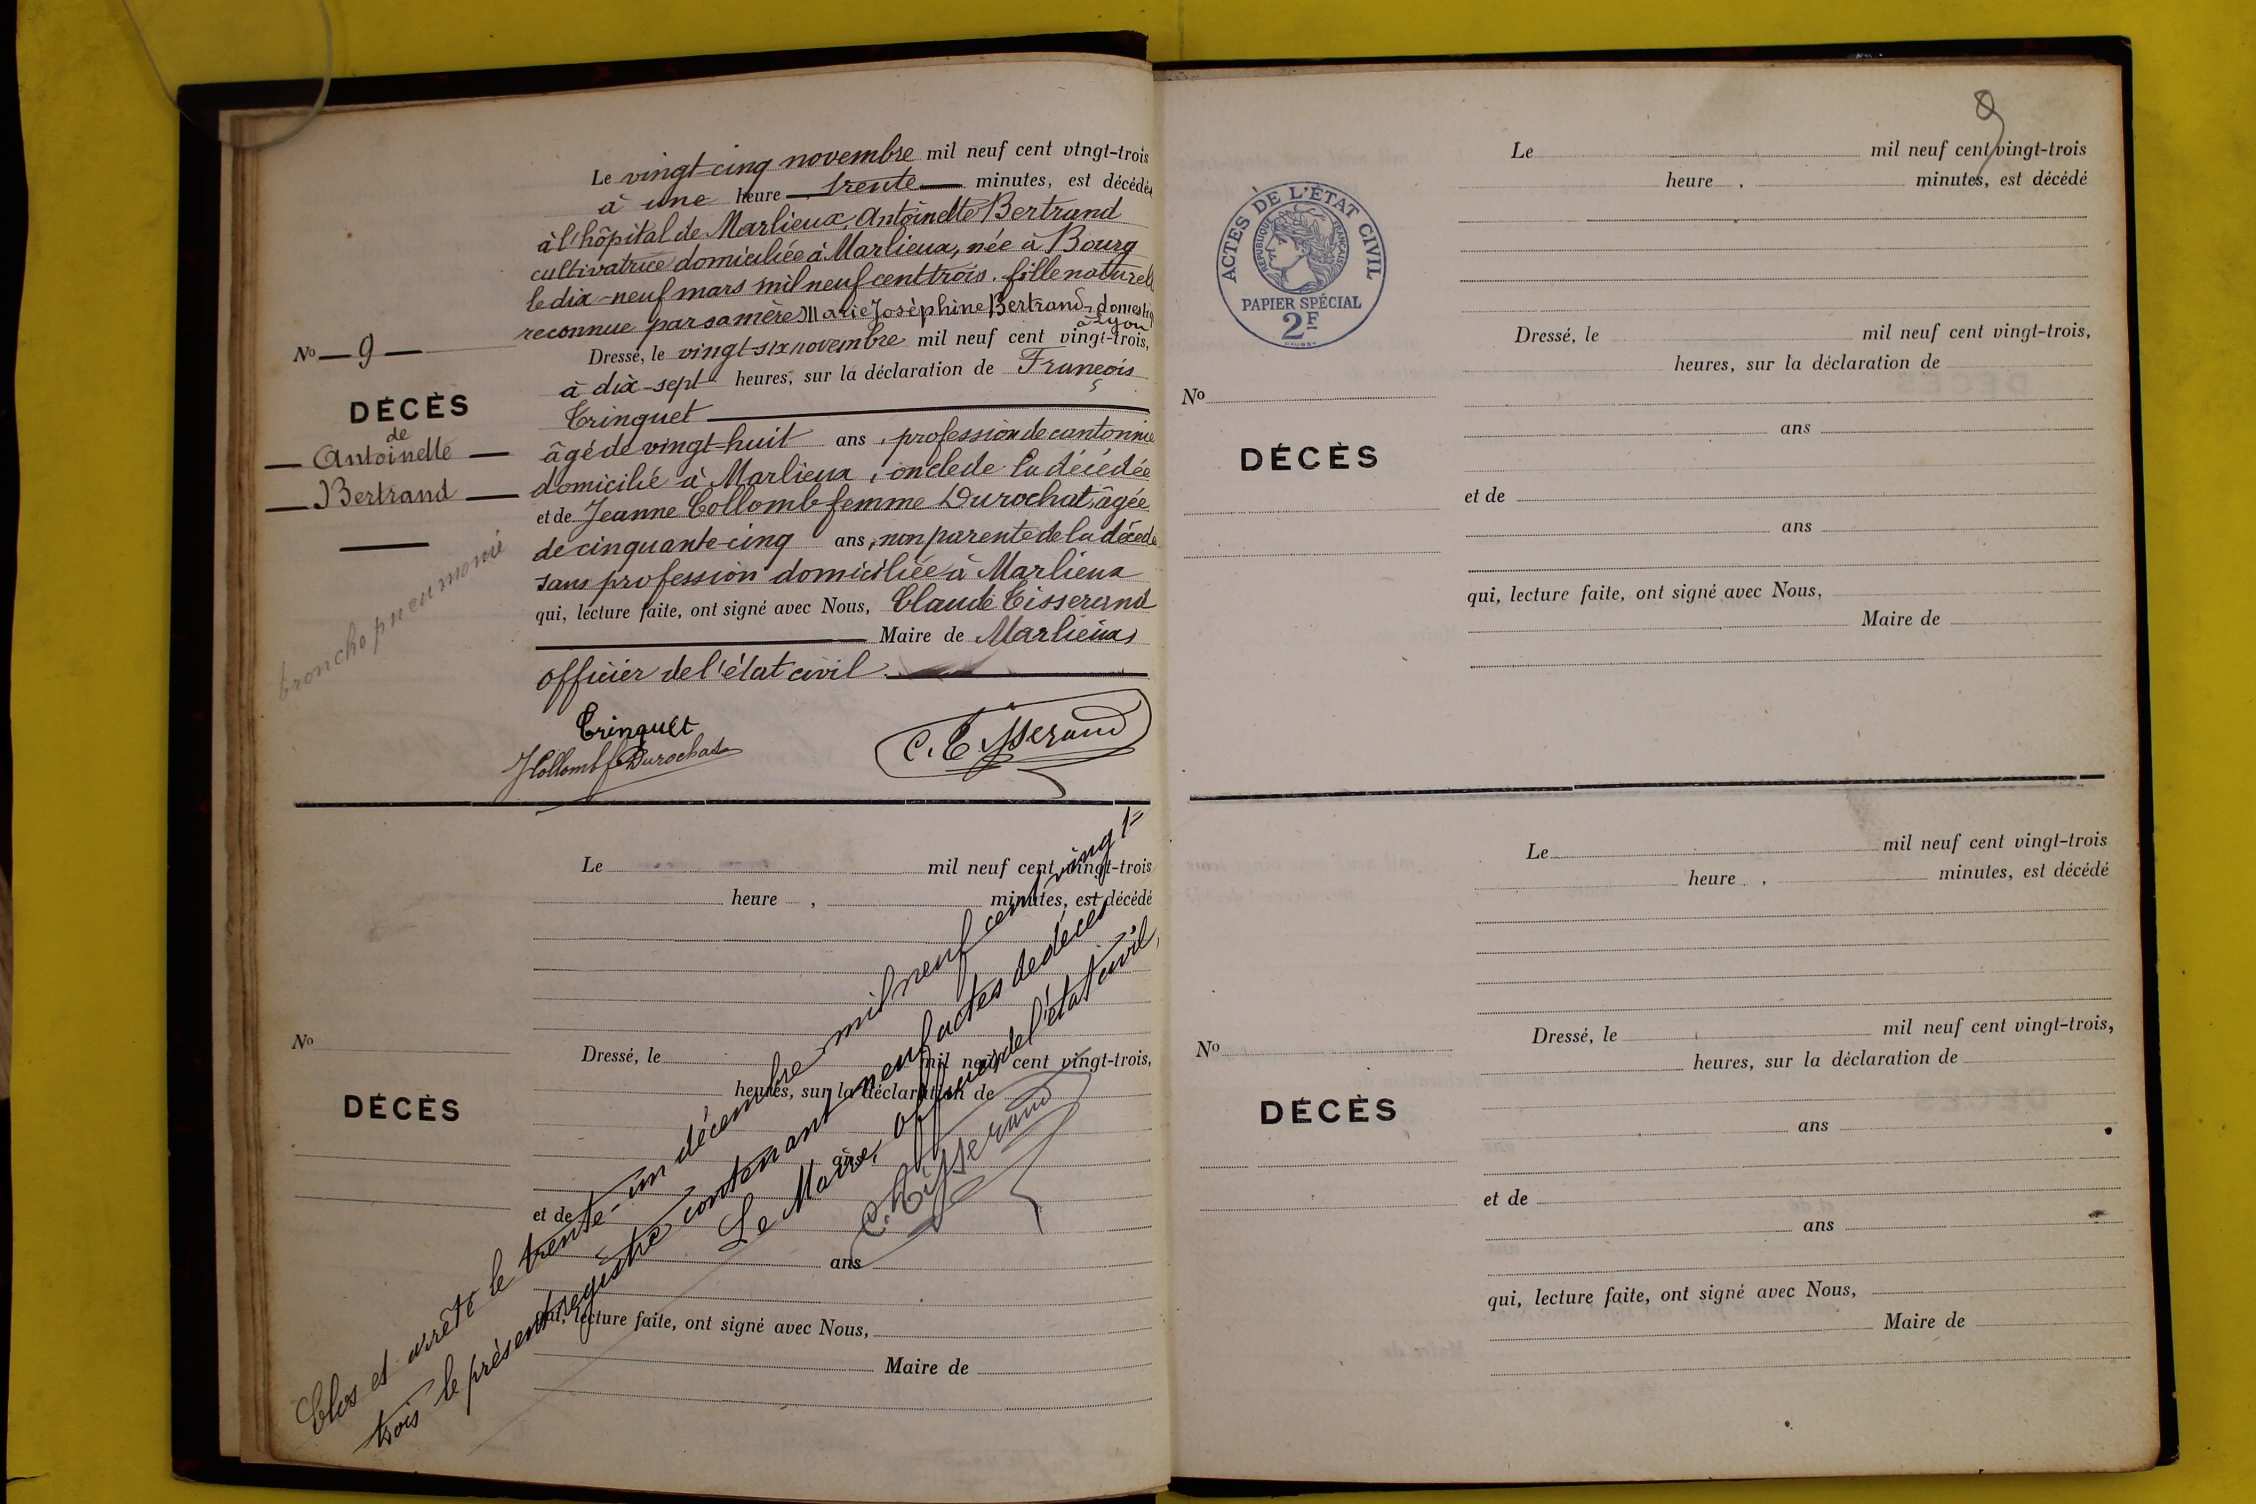 Le vingt-cinq novembre mil neuf cent vingt-trois
à une heure trente minutes, est décédée
à l'hôpital de Marlieux, Antoinette Bertrand
cultivatrice domiciliée à Marlieux, née à Bourg
le dix-neuf mars mil neuf cent trois. fille naturell
reconnue par sa mère Marie Josèphine Bertrand, domestiq
à Lyon
No 9
Dressé, le vingt-six novembre mil neuf cent vingt-trois,
à dix-sept heures, sur la déclaration de François
Trinquet
DÉCÈS
de
Antoinette
Bertrand
bronchopneumonie
âgé de vingt-huit ans, profession de cantonnie
domicilié à Marlieux, oncle de la décédée
et de Jeanne Collomb femme Durochat, âgée
de cinquante-cinq ans, non parente de la décédé
sans profession domiciliée à Marlieux
qui, lecture faite, ont signé avec Nous, Claude Tisserand
Maire de Marlieux
officier de l'état civil
Trinquet
JCollomb f Durochat
C. Tisserand
Le mil neuf cent vingt-trois
heure , minutes, est décédé
No
Dressé, le mil neuf cent vingt-trois,
heures, sur la déclaration de
DÉCÈS
ans
et de
ans
qui, lecture faite, ont signé avec Nous,
Maire de
Clos et arrêté le trente-un décembre mil neuf cent vingt=
trois le présent registre contenant neuf actes de décès
Le Maire, officier de l'état civil,
C. Tisserand
9
Le mil neuf cent vingt-trois
heure , minutes, est décédé
ACTES DE L'ÉTAT CIVIL
RÉPUBLIQUE FRANÇAISE
PAPIER SPÉCIAL
2F
Dressé, le mil neuf cent vingt-trois,
heures, sur la déclaration de
No
DÉCÈS
ans
et de
ans
qui, lecture faite, ont signé avec Nous,
Maire de
Le mil neuf cent vingt-trois
heure , minutes, est décédé
Dressé, le mil neuf cent vingt-trois,
No
heures, sur la déclaration de
DÉCÈS
ans
et de
ans
qui, lecture faite, ont signé avec Nous,
Maire de